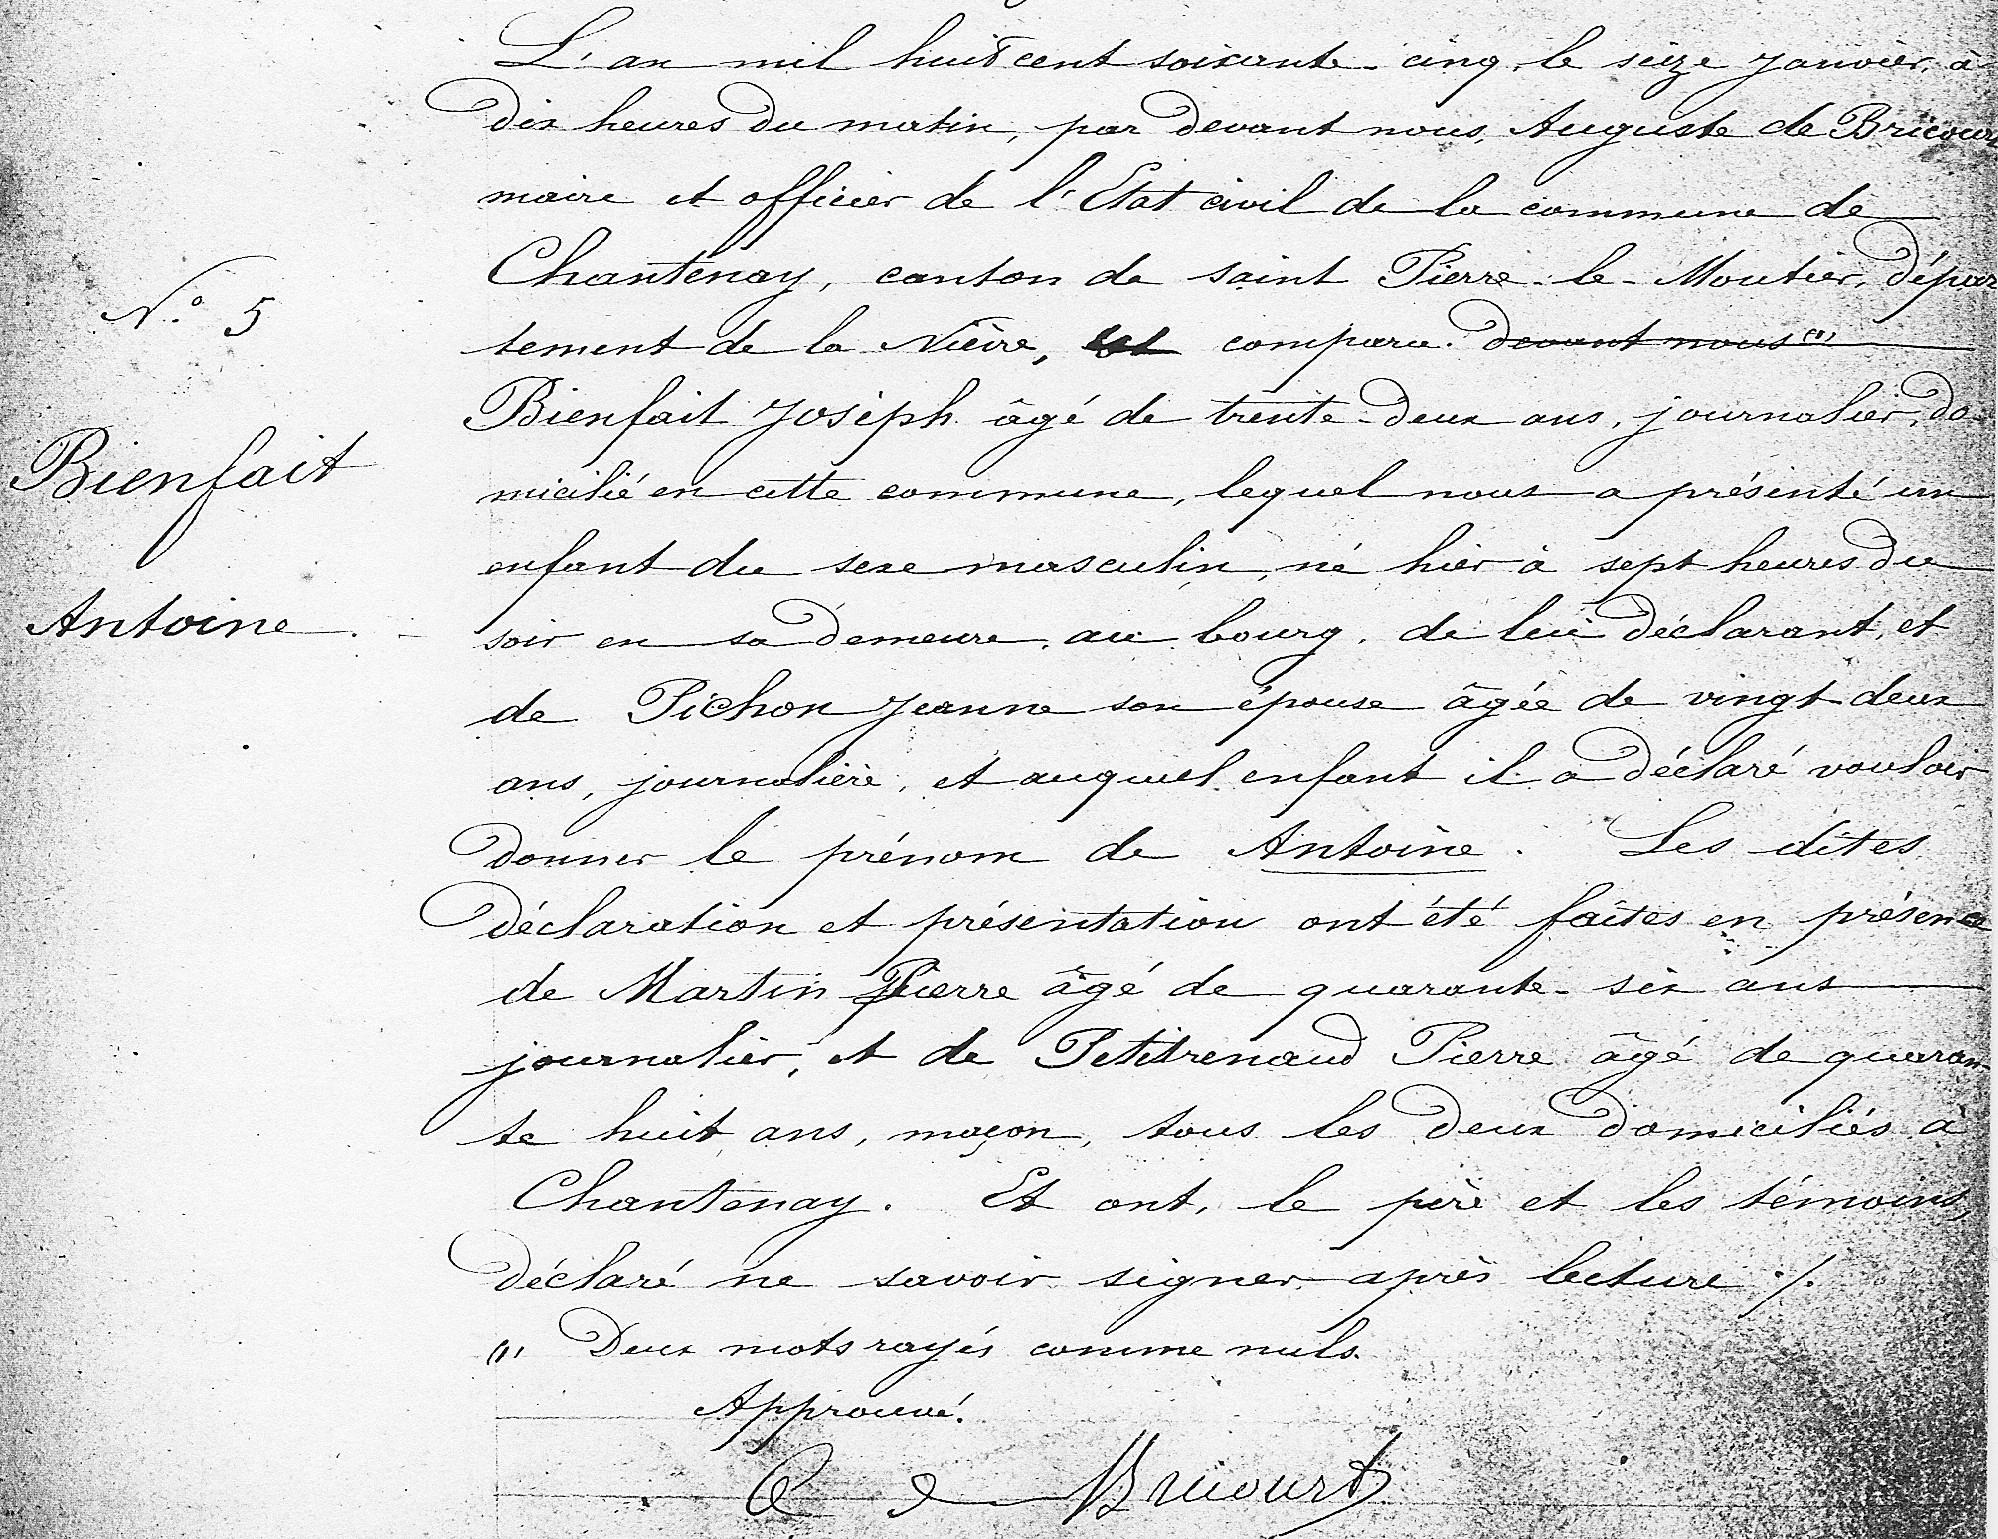 L'an mil huit cent soixante-cinq, le seize Janvier, à
dix heures du matin, par devant nous, Auguste de Bricourt
maire et officier de l'Etat civil de la commune de
Chantenay, canton de saint Pierre-le-Moutier, dépar
N.° 5
tement de la Nièvre, est comparu devant nous (1)
Bienfait Joseph âgé de trente-deux ans, journalier, do-
Bienfait
micilié en cette commune, lequel nous a présenté un
enfant du sexe masculin, né hier à sept heures du
Antoine.
soir en sa demeure, au bourg, de lui déclarant, et
de Pichon Jeanne son épouse âgée de vingt deux
ans, journalière, et auquel enfant il a déclaré vouloir
donner le prénom de Antoine. Les dites
déclaration et présentation ont été faites en présence
de Martin Pierre âgé de quarante-six ans
journalier, et de Petitrenaud Pierre âgé de quaran-
te huit ans, maçon, tous les deux domiciliés à
Chantenay. Et ont, le père et les témoins,
déclaré ne savoir signer après lecture ./.
(1) Deux mots rayés comme nuls.
Approuvé.
A de Bricourt